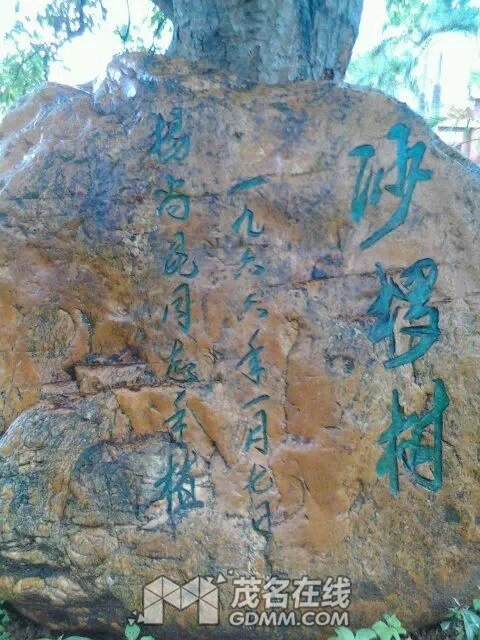 沙椤树
一九六六年一月七日
楊尚昆同志手植
茂名在线
GDMM.COM